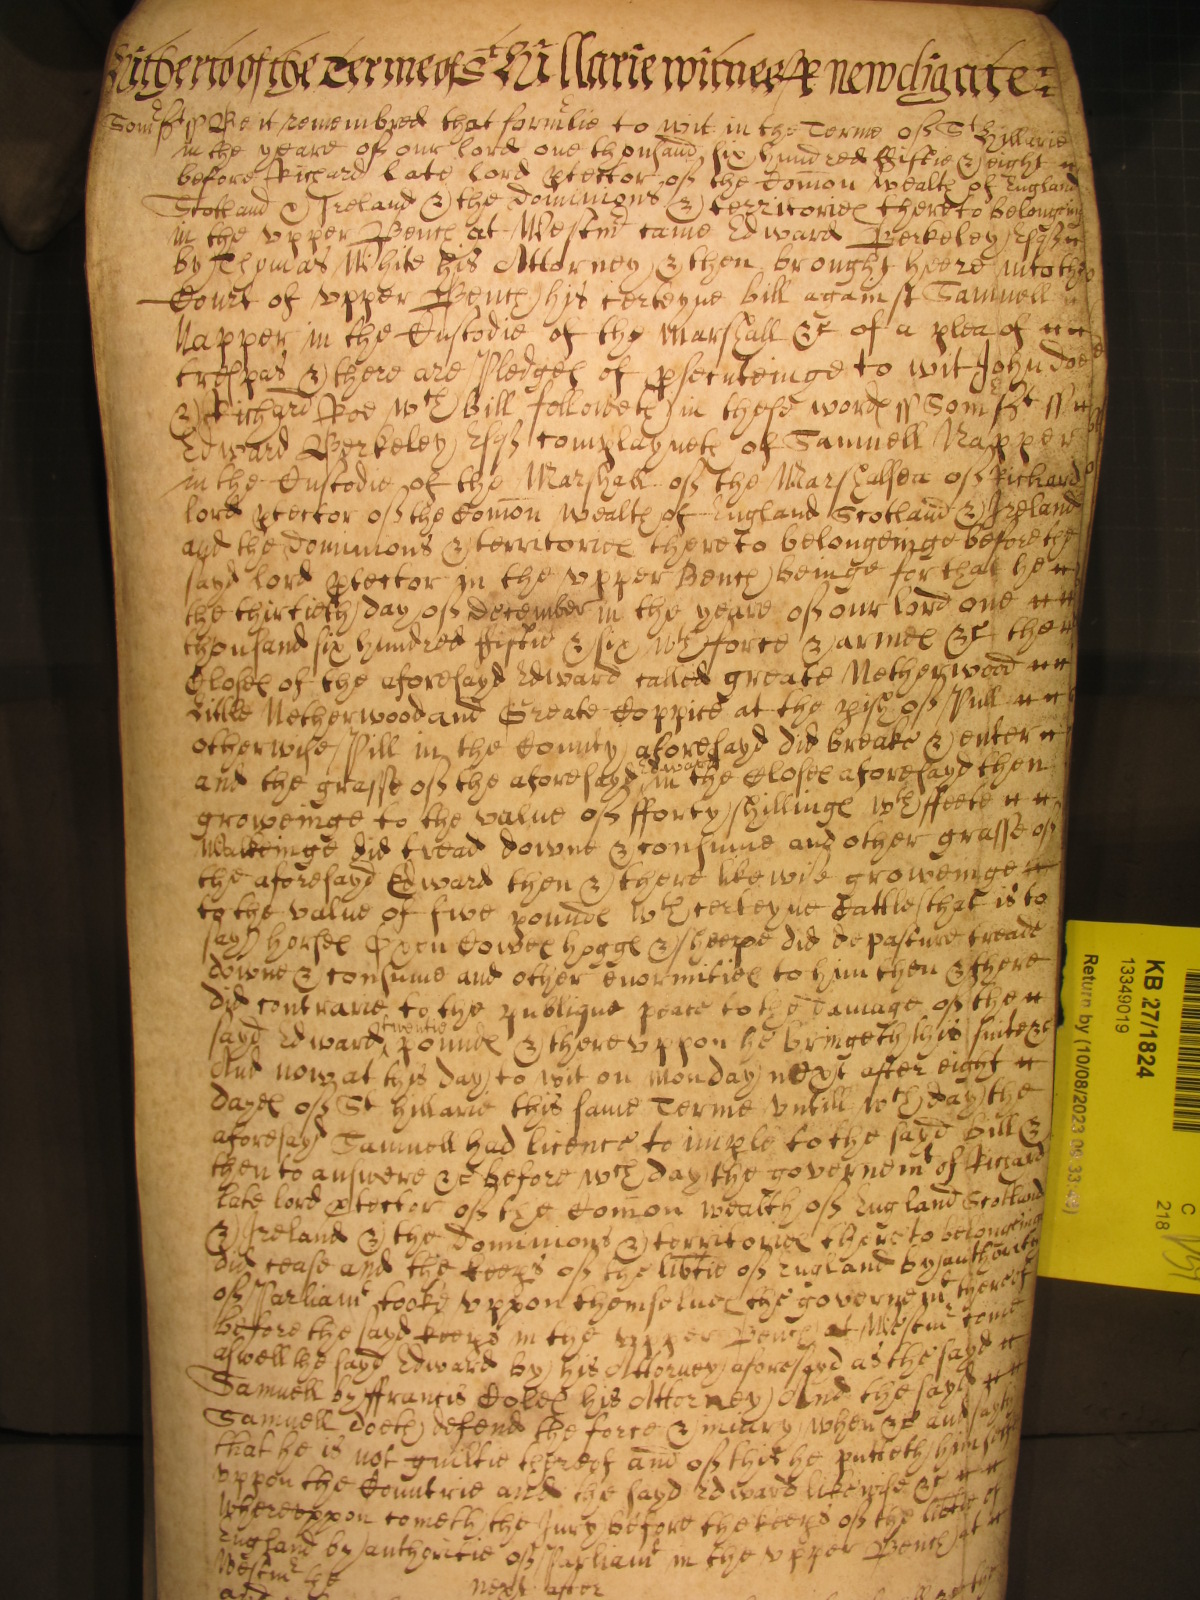 Hitherto of the Terme of St Hillarie witnes R Newdigate
Somst ss Be it remembred that formlie to wit in the Terme of St Hillarie
in the yeare of our lord one thousand six hundred fiftie & eight
before Richard late lord ptector of the Comon wealth of England
Scotland & Ireland & the dominions & territories thereto belonging
in the upper Bench at Westmr came Edward Berkeley Esqr
by Thomas White his Attorney & then brought heere into the
Court of upper Bench his certeyne bill against Samuell
Napper in the Custodie of the Marshall &c of a plea of
trespas & there are Pledges of psecuteinge to wit John Doe
& Richard Roe wch Bill followeth in these words ss Somst ss
Edward Berkeley Esqr complayneth of Samuell Napper
in the Custodie of the Marshall of the Marshalsea of Richard
lord ptector of the Comon wealth of England Scotland & Ireland
and the dominions & territories thereto belongeinge before the
sayd lord ptector in the upper Bench beinge for that he
the thirtieth day of december in the yeare of our lord one
thousand six hundred fiftie & six wth force & armes &c the
Closes of the aforesayd Edward called greate Netherwood
Little Netherwood and Greate Coppice at the pish of Pull
otherwise Pill in the County aforesayd did breake & enter
and the grasse of the aforesayd Edward in the Closes aforesayd then
groweinge to the value of fforty shillings wth ffeete
Walkeinge did tread downe & consume and other grasse of
the aforesayd Edward then & there likewise groweinge
to the value of five pounds wth certeyne Cattles that is to
say horses Oxen Cowes hoggs & sheepe did depasture treade
downe & consume and other enormities to him then & there
did contrarie to the publique peace to the damage of the
sayd Edward twentie pounds & thereuppon he bringeth his suite &c
And now at this day to wit on Monday next after eight
dayes of St Hillarie this same Terme untill wch day the
aforesayd Samuell had licence to imple to the sayd bill &
then to answere &c before wch day the governemt of Richard
late lord ptector of the Comon wealth of England Scotland
& Ireland & the dominions & territories thereto belongeinge
did cease and the keeps of the libtie of England by authoritie
of Parliamt tooke uppon themselves the governemt thereof
before the sayd keeps in the upper Bench at Westmr come
aswell the sayd Edward by his Attorney aforesayd as the sayd
Samuell by ffrancis Coles his Attorney And the sayd
Samuell doeth defend the force & iniury when &c and sayth
that he is not guiltie thereof and of this he putteth himselfe
uppon the Countrie and the sayd Edward likewise &c
Whereuppon cometh the Jury before the keeps of the libtie of
England by authoritie of Parliamt in the upper Bench at
Westmr the next after
and
KB 27/1824
13349019
Return by (10/08/2023
C
218